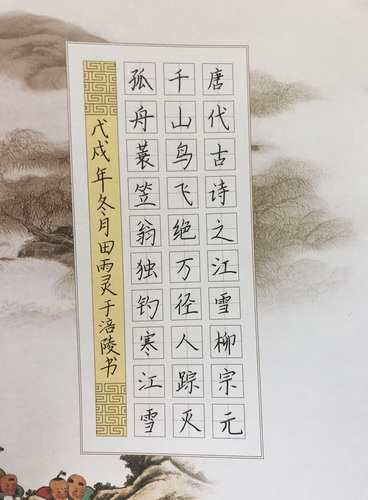 唐代古诗之江雪柳宗元
千山鸟飞绝万径人踪灭
孤舟蓑笠翁独钓寒江雪
戊戌年冬月田雨灵于涪陵书